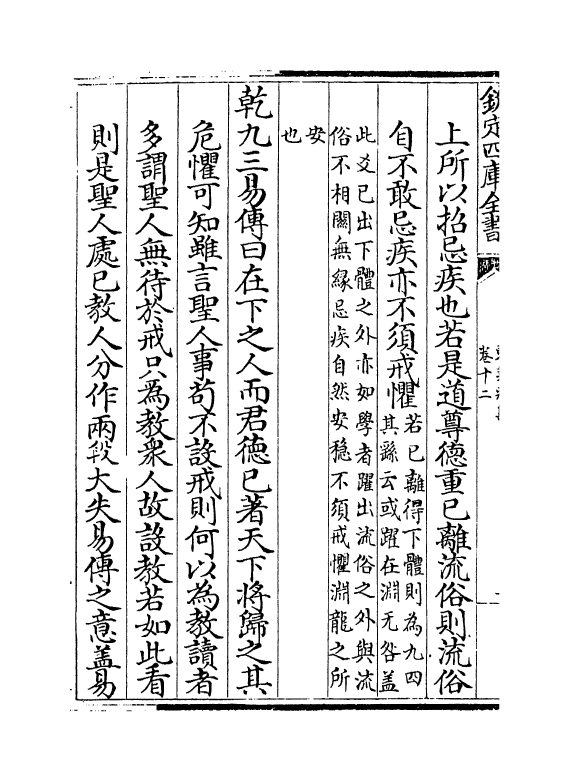 欽定四庫全書
卷十二
上所以招忌疾也若是道尊德重已離流俗則流俗
自不敢忌疾亦不須戒懼
若已離得下體則為九四
其繇云或躍在淵无咎盖
此爻已出下體之外亦如學者躍出流俗之外與流
俗不相關無緣忌疾自然安穏不須戒懼淵龍之所
安
也
乾九三易傳曰在下之人而君德已著天下將歸之其
危懼可知雖言聖人事苟不設戒則何以為教讀者
多謂聖人無待於戒只為教衆人故設教若如此看
則是聖人處已教人分作兩段大失易傳之意盖易